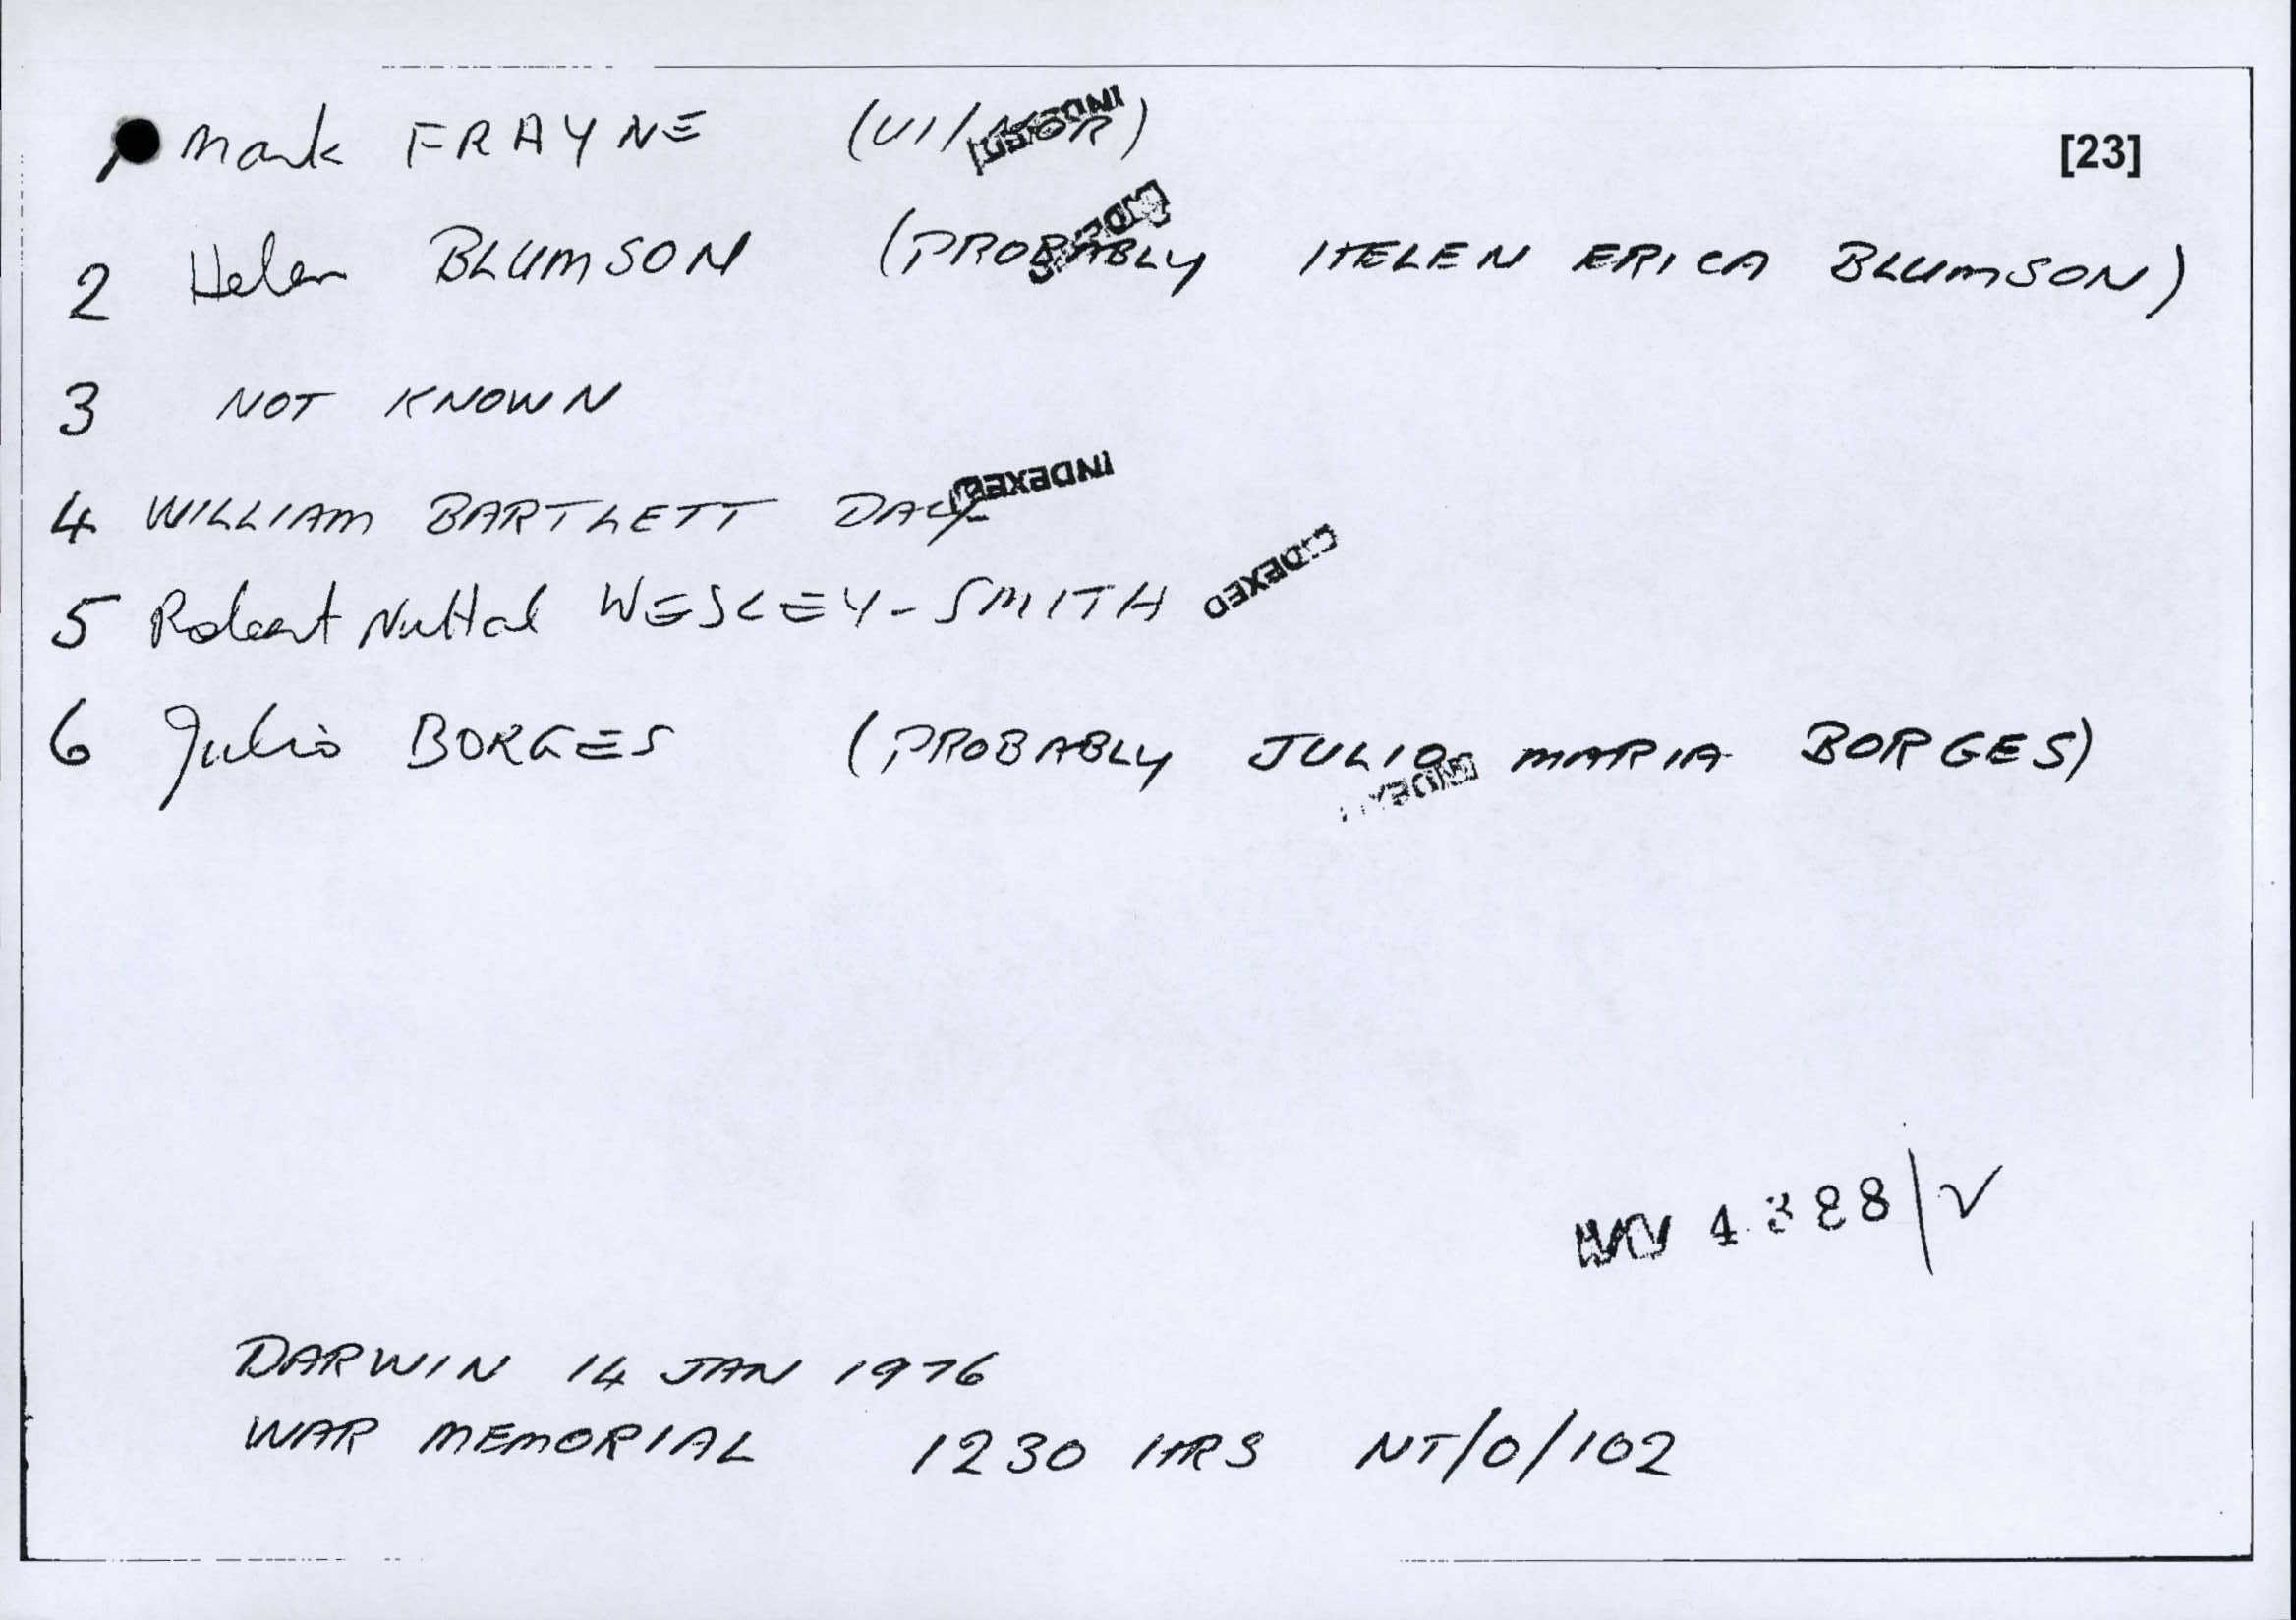 1 Mark FRAYNE (UI/NOR) INDEXED
[23]
2 Helen BLUMSON (PROBABLY HELEN ERICA BLUMSON)
3 NOT KNOWN
4 WILLIAM BARTLETT DAY INDEXED
5 Robert Nuttal WESLEY-SMITH INDEXED
6 Julio BORGES (PROBABLY JULIO MARIA BORGES)
4388/V
DARWIN 14 JAN 1976
WAR MEMORIAL 1230 HRS NT/O/102